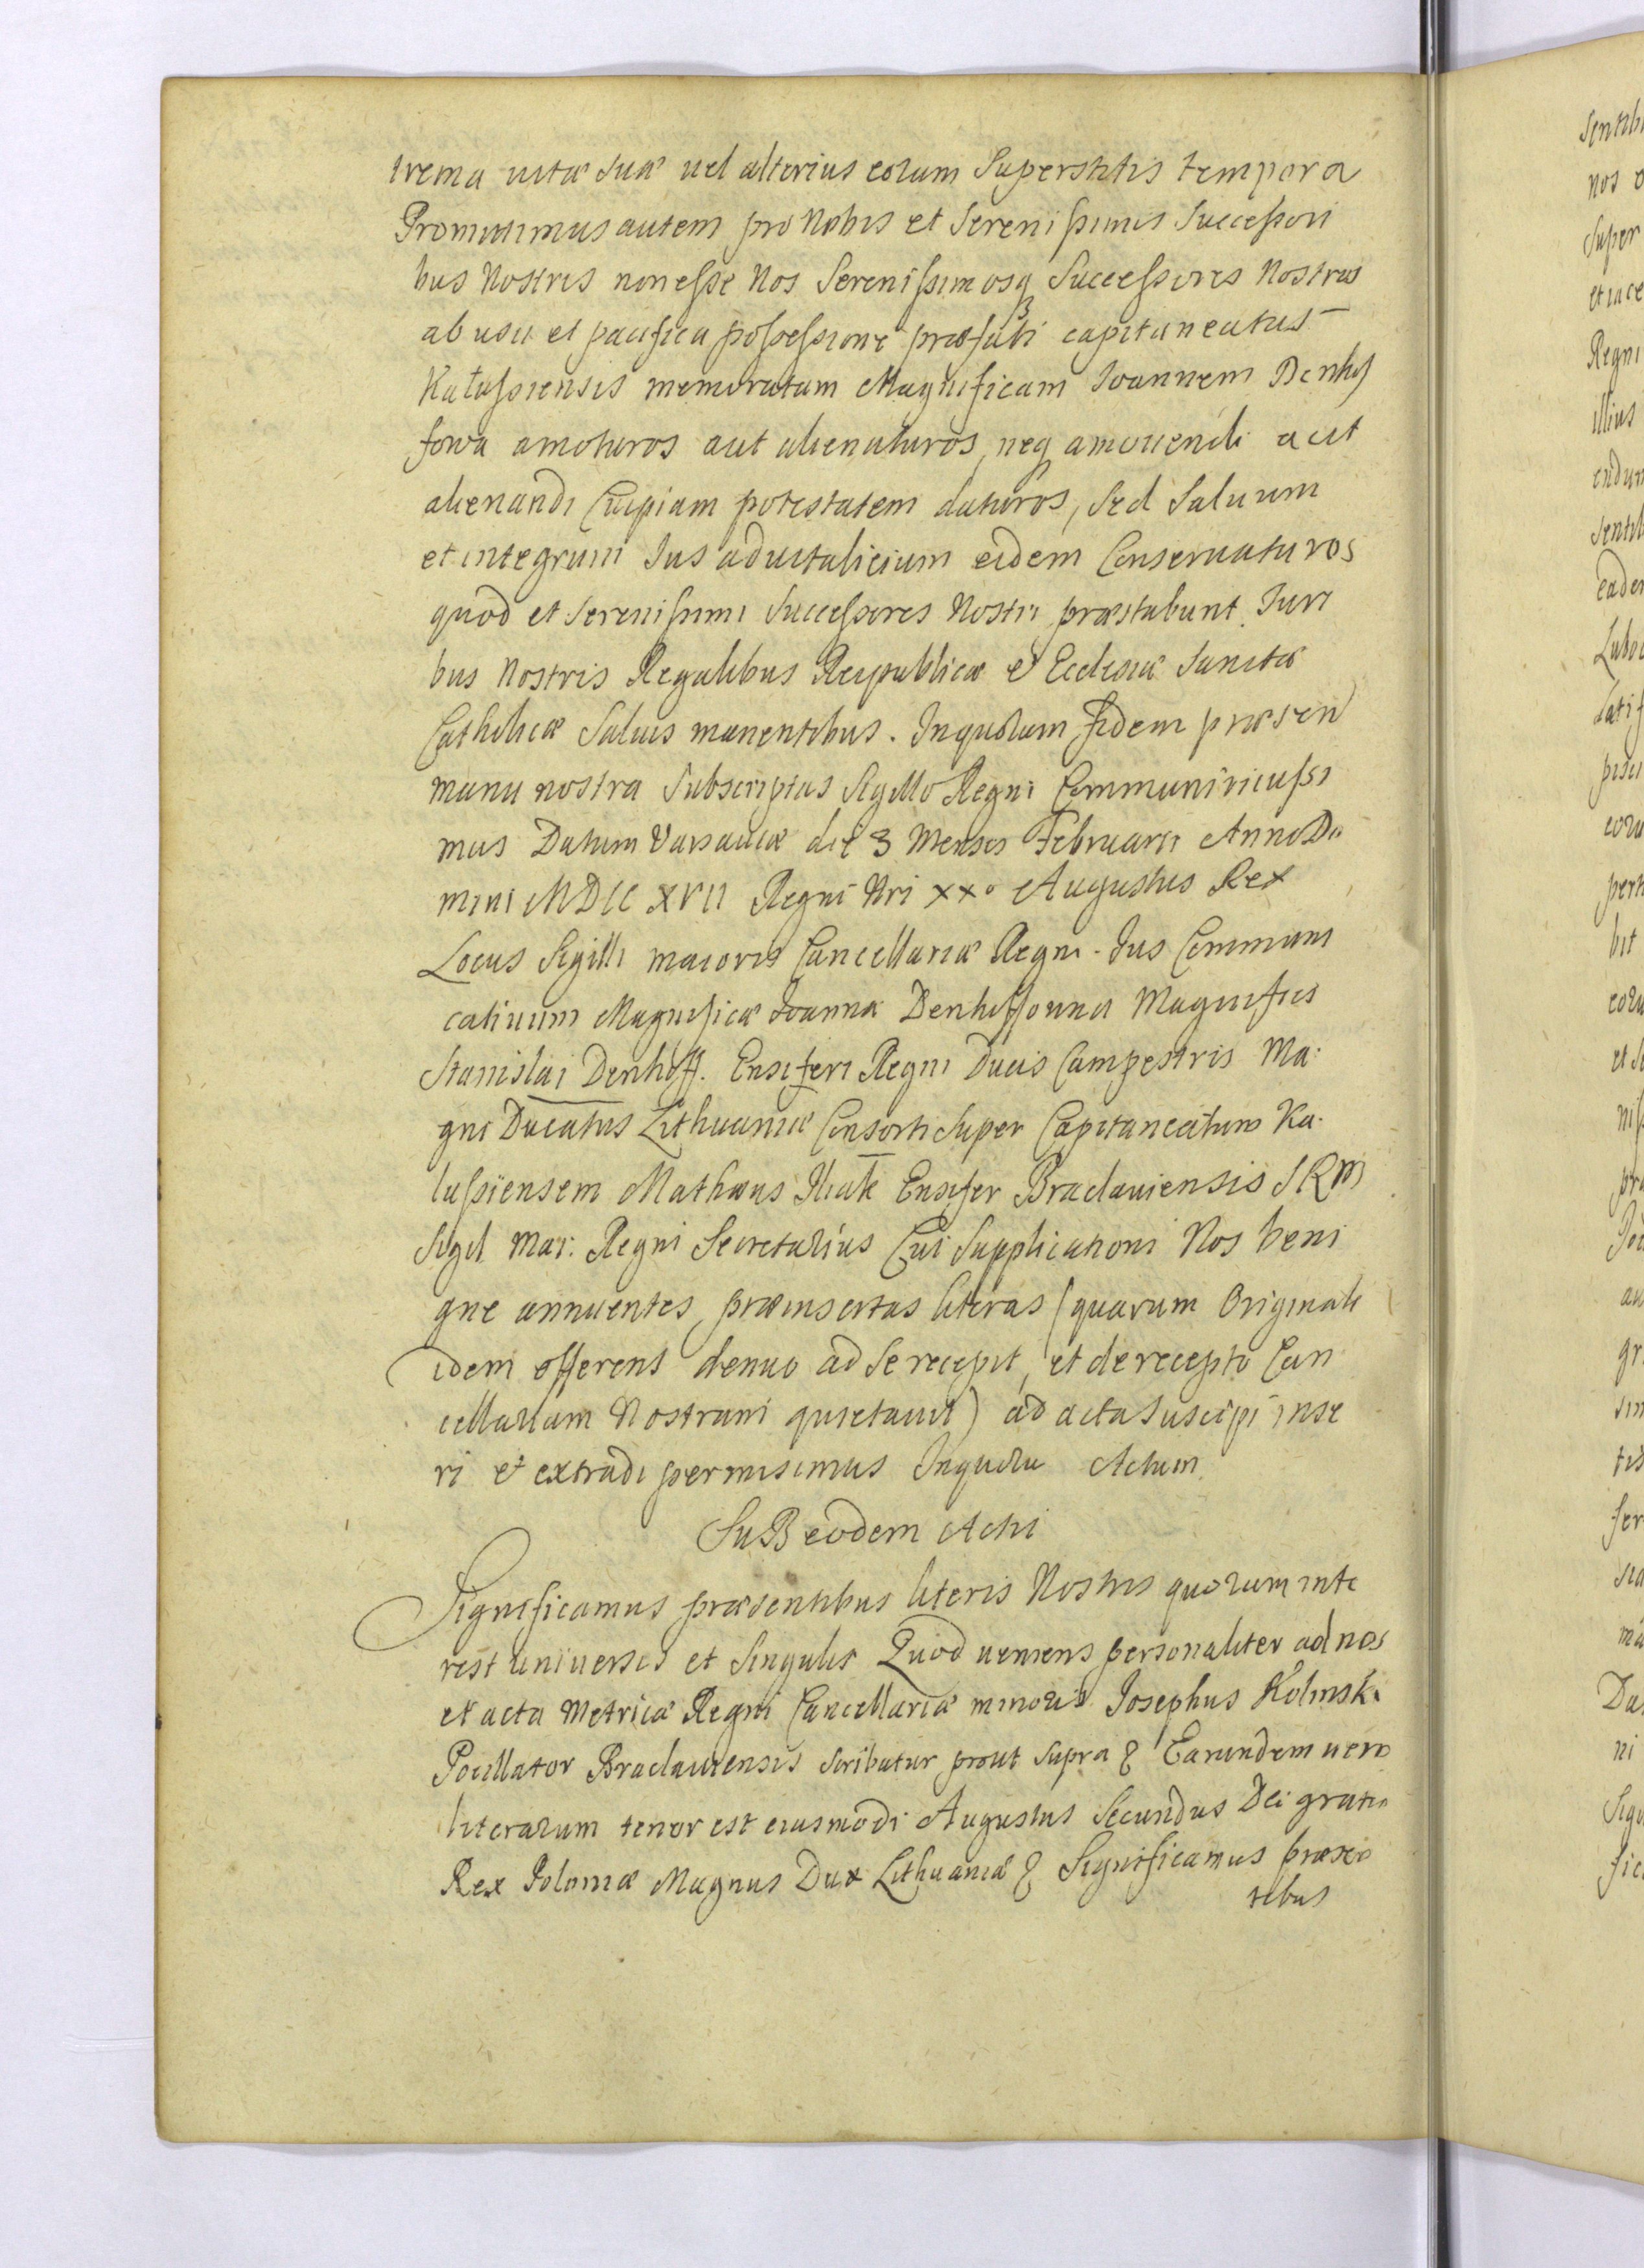 trema vitæ suæ vel alterius eorum Superstitis tempora
Promittimus autem pro Nobis et Serenissimis Successori
bus Nostris non esse Nos Serenissimosq Successores Nostros
ab usu et pacifica possessione præfati capitaneatus
Kałussiensis memoratam Magnificam Joannem Denhof
fowa amoturos aut alienaturos, neq amovendi aut
alienandi Cuipiam potestatem daturos, sed Saluum
et integrum Jus aduitalicium eidem Conservaturos
quod et Serenissimi Successores Nostri præstabunt. Juri
bus Nostris Regalibus Reipublicæ et Ecclesiæ Sanctæ
Catholicæ Saluis manentibus. In quorum fidem præsen
manu nostra Subscriptas Sigillo Regni Communiri iussi
mus Datum Varsaviæ die 3 Mensis Februarii Anno Do
mini MDCC XVII Regni Nri XXo Augustus Rex
Locus Sigilli maioris Cancellariæ Regni. Jus Communi
cativum Magnificæ Joannæ Denhoffowna Magnifici
Stanislai Denhoff. Ensiferi Regni Ducis Campestris Ma:
gni Ducatus Lithuaniæ Consorti Super Capitaneatum Ka.
lussiensem Mathæus Iliak Ensifer Braclaviensis SRM
Sigil Mai: Regni Secretarius Cui Supplicationi Nos beni
gne annuentes, præinsertas literas (quarum Originale
idem offerens denuo ad se recepit, et de recepto Can
cellariam Nostram quietavit) ad acta suscipi inse
ri et extradi permisimus In quoru Actum
SuB eodem Actu
Significamus præsentibus literis Nostris quorum inte
rest universis et Singulis Quod veniens personaliter ad nos
et acta Metricæ Regni Cancellariæ minoris Josephus Kolinski
Pocillator Braclaviensis scribatur prout supra & Earundem vero
literarum tenor est eiusmodi Augustus Secundus Dei gratia
Rex Poloniæ Magnus Dux Lithuaniæ & Significamus præsen
tibus